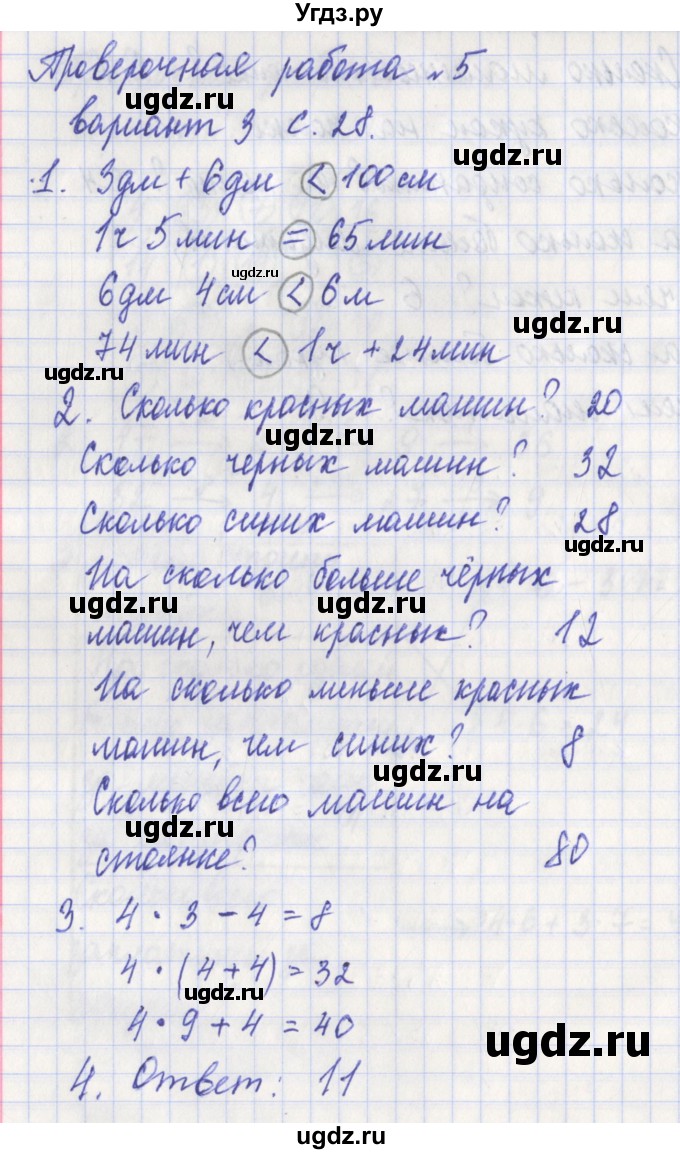 Угдз.ру
Проверочная работа №5
ugdz.ru
вариант 3 с. 28.
ugdz.ru
1. 3дм + 6дм < 100см
1ч 5мин = 65мин
ugdz.ru
6дм 4см < 6м
ugdz.ru
74мин < 1ч + 24мин
ugdz.ru
2. Сколько красных машин? 20
ugdz.ru
Сколько черных машин? 32
Сколько синих машин? 28
ugdz.ru
На сколько больше чёрных
ugdz.ru ugdz.ru
машин, чем красных? 12
На сколько меньше красных
машин, чем синих? 8
ugdz.ru
Сколько всего машин на
ugdz.ru
стоянке? 80
3. 4 · 3 - 4 = 8
4 · (4 + 4) = 32
ugdz.ru
4 · 9 + 4 = 40
ugdz.ru
4. Ответ: 11
ugdz.ru